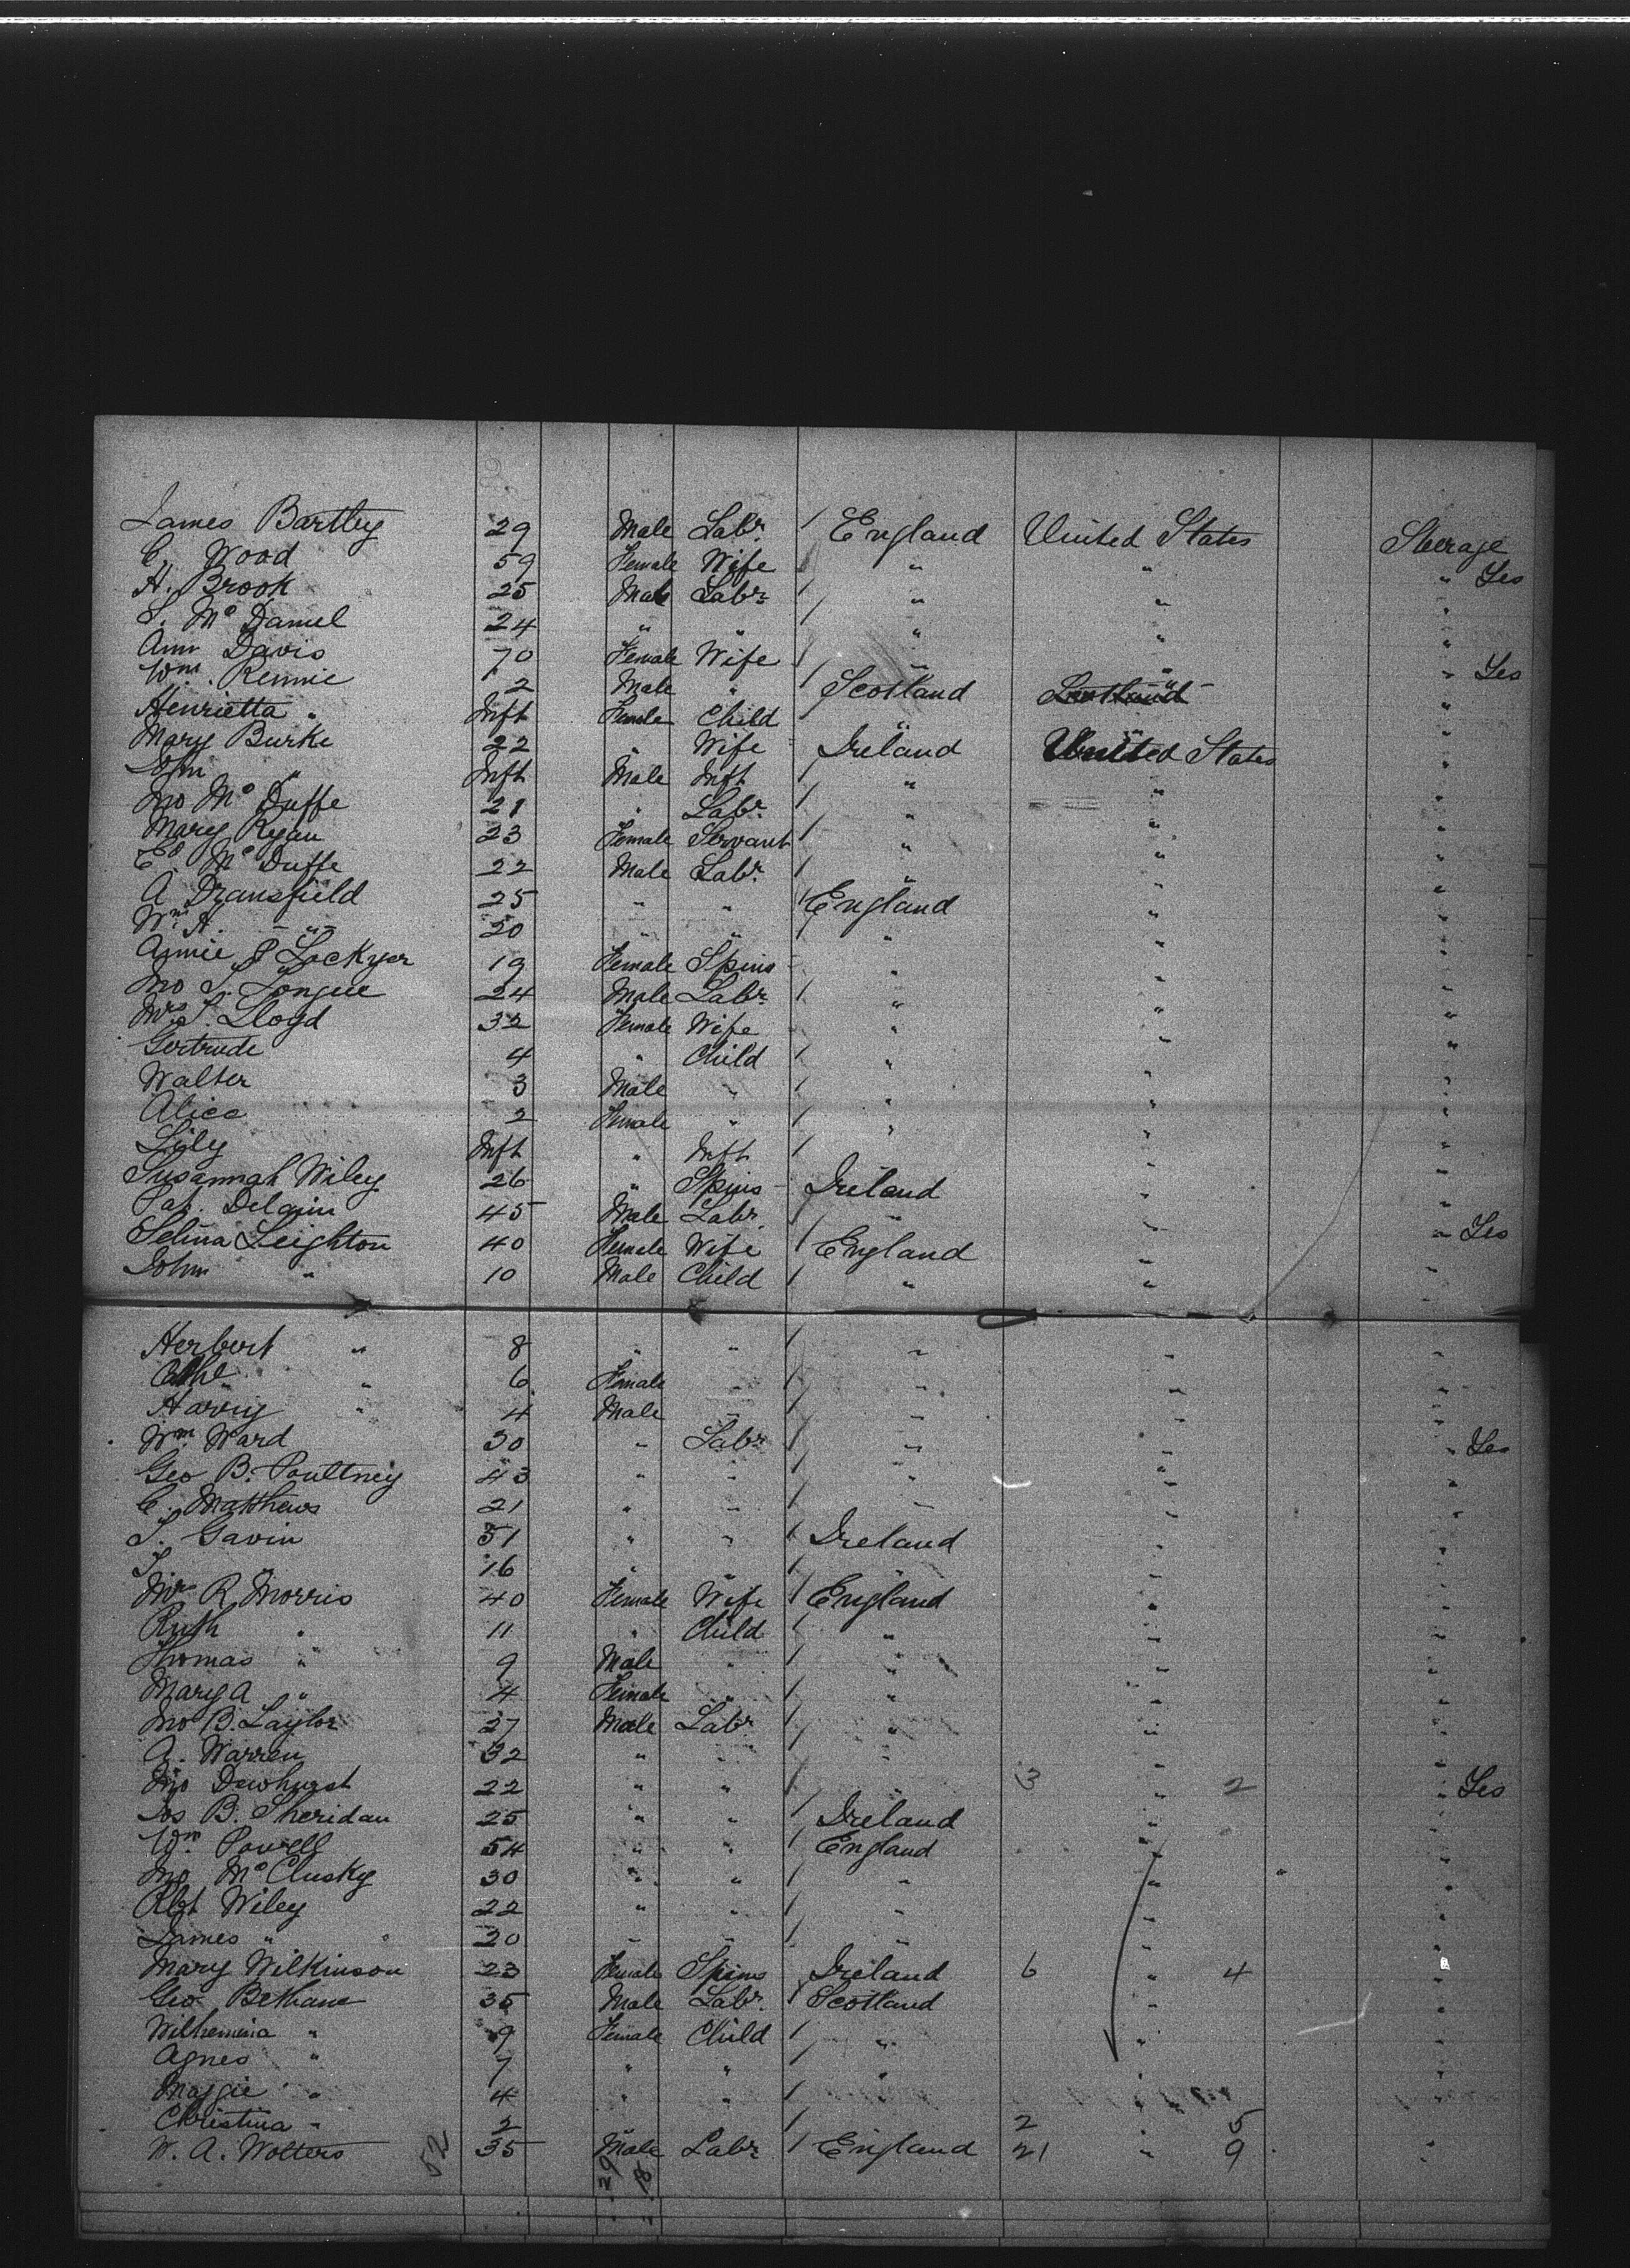 James Bartley 29 Male Labr. / England United States Steerage
C. Wood 59 Female Wife / " " " Yes
A. Brook 25 Male Labr. / " " "
S. Mc Daniel 24 " " / " " "
Ann Davis 70 Female Wife / " " " Yes
Wm. Rennie 2 Male " / Scotland Scotland "
Henrietta " Inft Female Child / " " "
Mary Burke 22 " Wife - Ireland United States "
John " Inft Male Inft / " " "
Jno Mc Duffe 21 " Labr. / " " "
Mary Ryan 23 Female Servant / " " "
Ed Mc Duffe 22 Male Labr. / " " "
A Dransfield 25 " " / England " "
Wm. H. -"- 20 " " " " "
Annie J Lockyer 19 Female Spins - " " "
Jno S. Tongue 24 Male Labr. / " " "
Mrs S. Lloyd 32 Female Wife - " " "
Gertrude 4 " Child / " " "
Walter 3 Male " / " " "
Alice 2 Female " / " " "
Lily Inft " Inft / " "
Susannah Wiley 26 " Spins - Ireland " "
Pat. Delain 45 Male Labr. / " " " Yes
Selina Leighton 40 Female Wife / England " "
John " 10 Male Child / " " "
Herbert " 8 " " / " " "
" 6 Female " / " " "
Harry " 4 Male " / " " "
Wm. Ward 30 " Labr / " " " Yes
Geo B. Poultney 43 " " / " " "
C. Matthews 21 " " / " " "
T. Gavin 51 " " / Ireland " "
T. " 16 " " / " " "
Mrs R Morris 40 Female Wife / England " "
Ruth " 11 " Child / " " "
Thomas " 9 Male " / " " "
Mary A " 4 Female " / " " "
Jno B. Taylor 27 Male Labr / " " "
A. Warren 32 " " / " " "
Jno Dewhurst 22 " " / " 3 " 2 " Yes
Jos B. Sheridan 25 " " / Ireland " "
Wm. Powell 54 " " / England " "
Jno Mc Clusky 30 " " / " " " "
Rbt Wiley 22 " " / " " "
James " 20 " " / " " "
Mary Wilkinson 23 Female Spins Ireland 6 " 4 "
Geo Bethane 35 Male Labr. / Scotland " "
Wilhemina " 9 Female Child / " " "
Agnes " 7 " " / " " "
Maggie " 4 " " / " " "
Christina " 2 " " / 2 5
W. A. Wolters 35 Male Labr / England 21 " 9 "
52 29 18